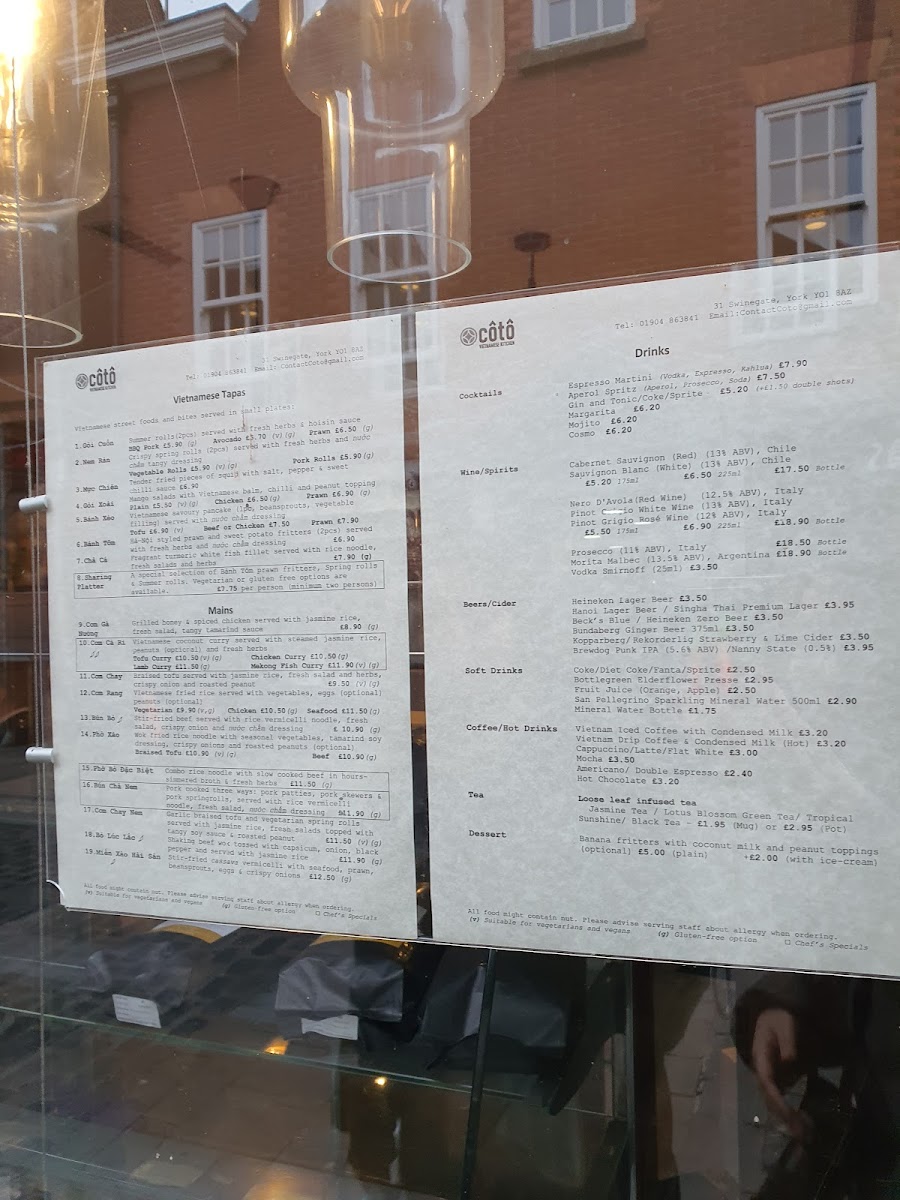 côtô
VIETNAMESE KITCHEN
31 Swinegate, York YO1 8AZ
Tel: 01904 863841 Email: ContactCoto@gmail.com
Vietnamese Tapas
Vietnamese street foods and bites served in small plates:
1.Gỏi Cuốn Summer rolls(2pcs) served with fresh herbs & hoisin sauce
BBQ Pork £5.90 (g) Avocado £5.70 (v)(g) Prawn £6.50 (g)
2.Nem Rán Crispy spring rolls (2pcs) served with fresh herbs and nước
chấm tangy dressing
Vegetable Rolls £5.90 (v)(g) Pork Rolls £5.90(g)
3.Mực Chiên Tender fried pieces of squid with salt, pepper & sweet
chilli sauce £6.90
4.Gỏi Xoài Mango salads with Vietnamese balm, chilli and peanut topping
Plain £5.50 (v)(g) Chicken £6.50(g) Prawn £6.90 (g)
5.Bánh Xèo Vietnamese savoury pancake (1pc, beansprouts, vegetable
filling) served with nước chấm dressing
Tofu £6.90 (v) Beef or Chicken £7.50 Prawn £7.90
6.Bánh Tôm Hà-Nội styled prawn and sweet potato fritters (2pcs) served
with fresh herbs and nước chấm dressing £6.90
7.Chả Cá Fragrant turmeric white fish fillet served with rice noodle,
fresh salads and herbs £7.90 (g)
8.Sharing Platter A special selection of Bánh Tôm prawn fritters, Spring rolls
& Summer rolls. Vegetarian or gluten free options are
available. £7.75 per person (minimum two persons)
Mains
9.Com Gà Nuong Grilled honey & spiced chicken served with jasmine rice,
fresh salad, tangy tamarind sauce £8.90 (g)
10.Com Cà Ri Vietnamese coconut curry served with steamed jasmine rice,
peanuts (optional) and fresh herbs
Tofu Curry £10.30(v)(g) Chicken Curry £10.50(g)
Lamb Curry £11.50(g) Mekong Fish Curry £11.90(v)(g)
11.Com Chay Braised tofu served with jasmine rice, fresh salad and herbs,
crispy onion and roasted peanut £9.50 (v)(g)
12.Com Rang Vietnamese fried rice served with vegetables, eggs (optional)
peanuts (optional)
Vegetarian £9.90(v,g) Chicken £10.50(g) Seafood £11.50(g)
13.Bún Bò Stir-fried beef served with rice vermicelli noodle, fresh
salad, crispy onion and nước chấm dressing £ 10.90 (g)
14.Phở Xào Wok fried rice noodle with seasonal vegetables, tamarind soy
dressing, crispy onions and roasted peanuts (optional)
Braised Tofu £10.90 (v)(g) Beef £10.90(g)
15.Phở Bò Đặc Biệt Combo rice noodle with slow cooked beef in hours-
simmered broth & fresh herbs £11.50 (g)
16.Bún Chả Nem Pork cooked three ways: pork patties, pork skewers &
pork springrolls, served with rice vermicelli
noodle, fresh salad, nước chấm dressing £11.90 (g)
17.Com Chay Nem Garlic braised tofu and vegetarian spring rolls
served with jasmine rice, fresh salads topped with
tangy soy sauce & roasted peanut £11.50 (v)(g)
18.Bò Lúc Lắc Shaking beef wox tossed with capsicum, onion, black
pepper and served with jasmine rice £11.90 (g)
19.Miến Xào Hải Sản Stir-fried cassava vermicelli with seafood, prawn,
beansprouts, eggs & crispy onions £12.50 (g)
All food might contain nut. Please advise serving staff about allergy when ordering.
(v) Suitable for vegetarians and vegans (g) Gluten-free option □ Chef's Specials
côtô
VIETNAMESE KITCHEN
31 Swinegate, York YO1 8AZ
Tel: 01904 863841 Email:ContactCoto@gmail.com
Drinks
Cocktails Espresso Martini (Vodka, Expresso, Kahlua) £7.90
Aperol Spritz (Aperol, Prosecco, Soda) £7.50
Gin and Tonic/Coke/Sprite £5.20 (+£1.50 double shots)
Margarita £6.20
Mojito £6.20
Cosmo £6.20
Wine/Spirits Cabernet Sauvignon (Red) (13% ABV), Chile
Sauvignon Blanc (White) (13% ABV), Chile
£5.20 175ml £6.50 225ml £17.50 Bottle
Nero D'Avola(Red Wine) (12.5% ABV), Italy
Pinot Grigio White Wine (13% ABV), Italy
Pinot Grigio Rosé Wine (12% ABV), Italy
£5.50 175ml £6.90 225ml £18.90 Bottle
Prosecco (11% ABV), Italy £18.50 Bottle
Morita Malbec (13.5% ABV), Argentina £18.90 Bottle
Vodka Smirnoff (25ml) £3.50
Beers/Cider Heineken Lager Beer £3.50
Hanoi Lager Beer / Singha Thai Premium Lager £3.95
Beck's Blue / Heineken Zero Beer £3.50
Bundaberg Ginger Beer 375ml £3.50
Kopparberg/Rekorderlig Strawberry & Lime Cider £3.50
Brewdog Punk IPA (5.6% ABV) /Nanny State (0.5%) £3.95
Soft Drinks Coke/Diet Coke/Fanta/Sprite £2.50
Bottlegreen Elderflower Presse £2.95
Fruit Juice (Orange, Apple) £2.50
San Pellegrino Sparkling Mineral Water 500ml £2.90
Mineral Water Bottle £1.75
Coffee/Hot Drinks Vietnam Iced Coffee with Condensed Milk £3.20
Vietnam Drip Coffee & Condensed Milk (Hot) £3.20
Cappuccino/Latte/Flat White £3.00
Mocha £3.50
Americano/ Double Espresso £2.40
Hot Chocolate £3.20
Tea Loose leaf infused tea
Jasmine Tea / Lotus Blossom Green Tea/ Tropical
Sunshine/ Black Tea - £1.95 (Mug) or £2.95 (Pot)
Dessert Banana fritters with coconut milk and peanut toppings
(optional) £5.00 (plain) +£2.00 (with ice-cream)
All food might contain nut. Please advise serving staff about allergy when ordering.
(v) Suitable for vegetarians and vegans (g) Gluten-free option □ Chef's Specials